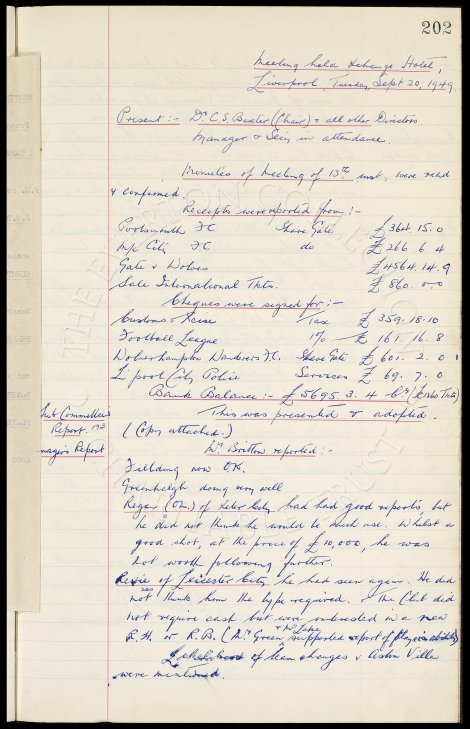 202
Meeting held Exchange Hotel,
Liverpool, Tuesday, Sept 20, 1949.
Present :- Dr C.S. Baxter (Chair) & all other Directors.
Manager & Secy in attendance.
Minutes of meeting of 13th inst. were read
& confirmed.
Receipts were reported from :-
Portsmouth FC Share Gate £364. 15. 0
M/c City FC do £266. 6. 4
Gate v Wolves £4564. 14. 9
Sale International Tkts. £860. 0-0
Cheques were signed for :-
Customs & Excise Tax £359. 18. 10
Football League 1% £161. 16. 8
Wolverhampton Wanderers F.C. Share Gate £601. 2. 0
L'pool City Police Services £69. 7. 0
Bank Balance :- £5695. 3. 4 Cr
Sub Committee This was presented & adopted.
Report.
(Copy attached.)
Managers Report Mr Britton reported :-
Fielding now OK.
Greenhalgh doing very well
Regan (O.L.) of had had good reports, but
he did not think he would be much use. Whilst a
good shot, at the price of £10,000, he was
not worth following further.
Revie of Leicester City, he had seen again. He did
not think him the type required. The Club did
not require cash but were interested in a new
R.H. or R.B. (Mr Green & Mr supported report of players ability)
of team changes v Aston Villa
were mentioned.